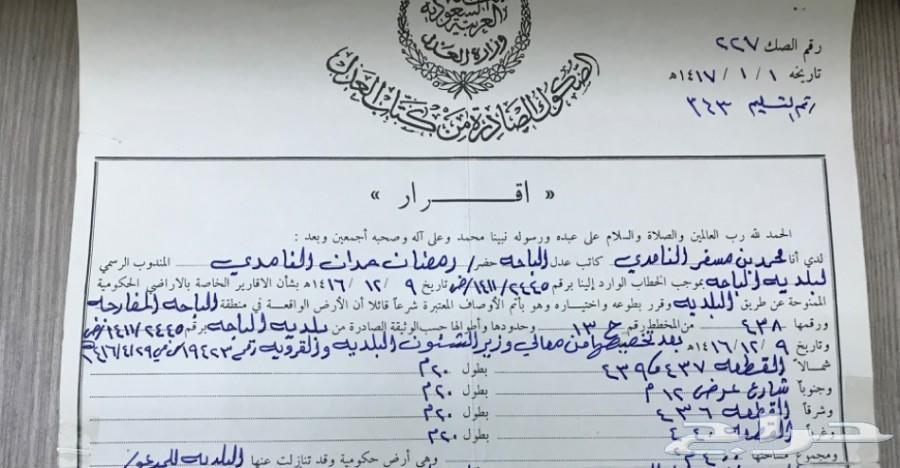 العربية السعودية
وزارة العدل
الصكوك الصادرة من كتاب العدل
رقم الصك ٢٢٧
تاريخه ١ / ١ / ١٤١٧هـ
رقم التسليم ٣٤٣
« اقرار »
الحمد لله رب العالمين والصلاة والسلام على عبده ورسوله نبينا محمد وعلى آله وصحبه أجمعين وبعد :
لدي أنا محمد بن مسفر الغامدي كاتب عدل الباحه حضر / رمضان حمدان الغامدي المندوب الرسمي
لبلدية الباحه بموجب الخطاب الوارد إلينا برقم ٢٤٤٥/١٤١١/ض تاريخ ٩ / ١٢ / ١٤١٦هـ بشأن الأقارير الخاصة بالأراضي الحكومية
الممنوحة عن طريق البلديه وقرر بطوعه واختياره وهو بأتم الأوصاف المعتبرة شرعاً قائلا أن الأرض الواقعة في منطقة الباحه المفارجه
ورقمها ٤٣٨ من المخطط رقم ١٣ وحدودها وأطوالها حسب الوثيقة الصادرة من بلدية الباحه برقم ٢٤٤٥/١٤١١/ض
وتاريخ ٩ / ١٢ / ١٤١٦هـ بعد تخصيصها من معالي وزير الشئون البلديه والقرويه
شمالاً القطعه ٤٣٧ و ٤٣٩ بطول ٢٠م
وجنوباً شارع عرض ١٢ م بطول ٢٠م
وشرقاً القطعه ٤٣٦ بطول ٢٠م
وغرباً القطعه بطول ٢٠م
ومجموع مساحتها وهي أرض حكومية وقد تنازلت عنها البلديه للمدعو /
حراج